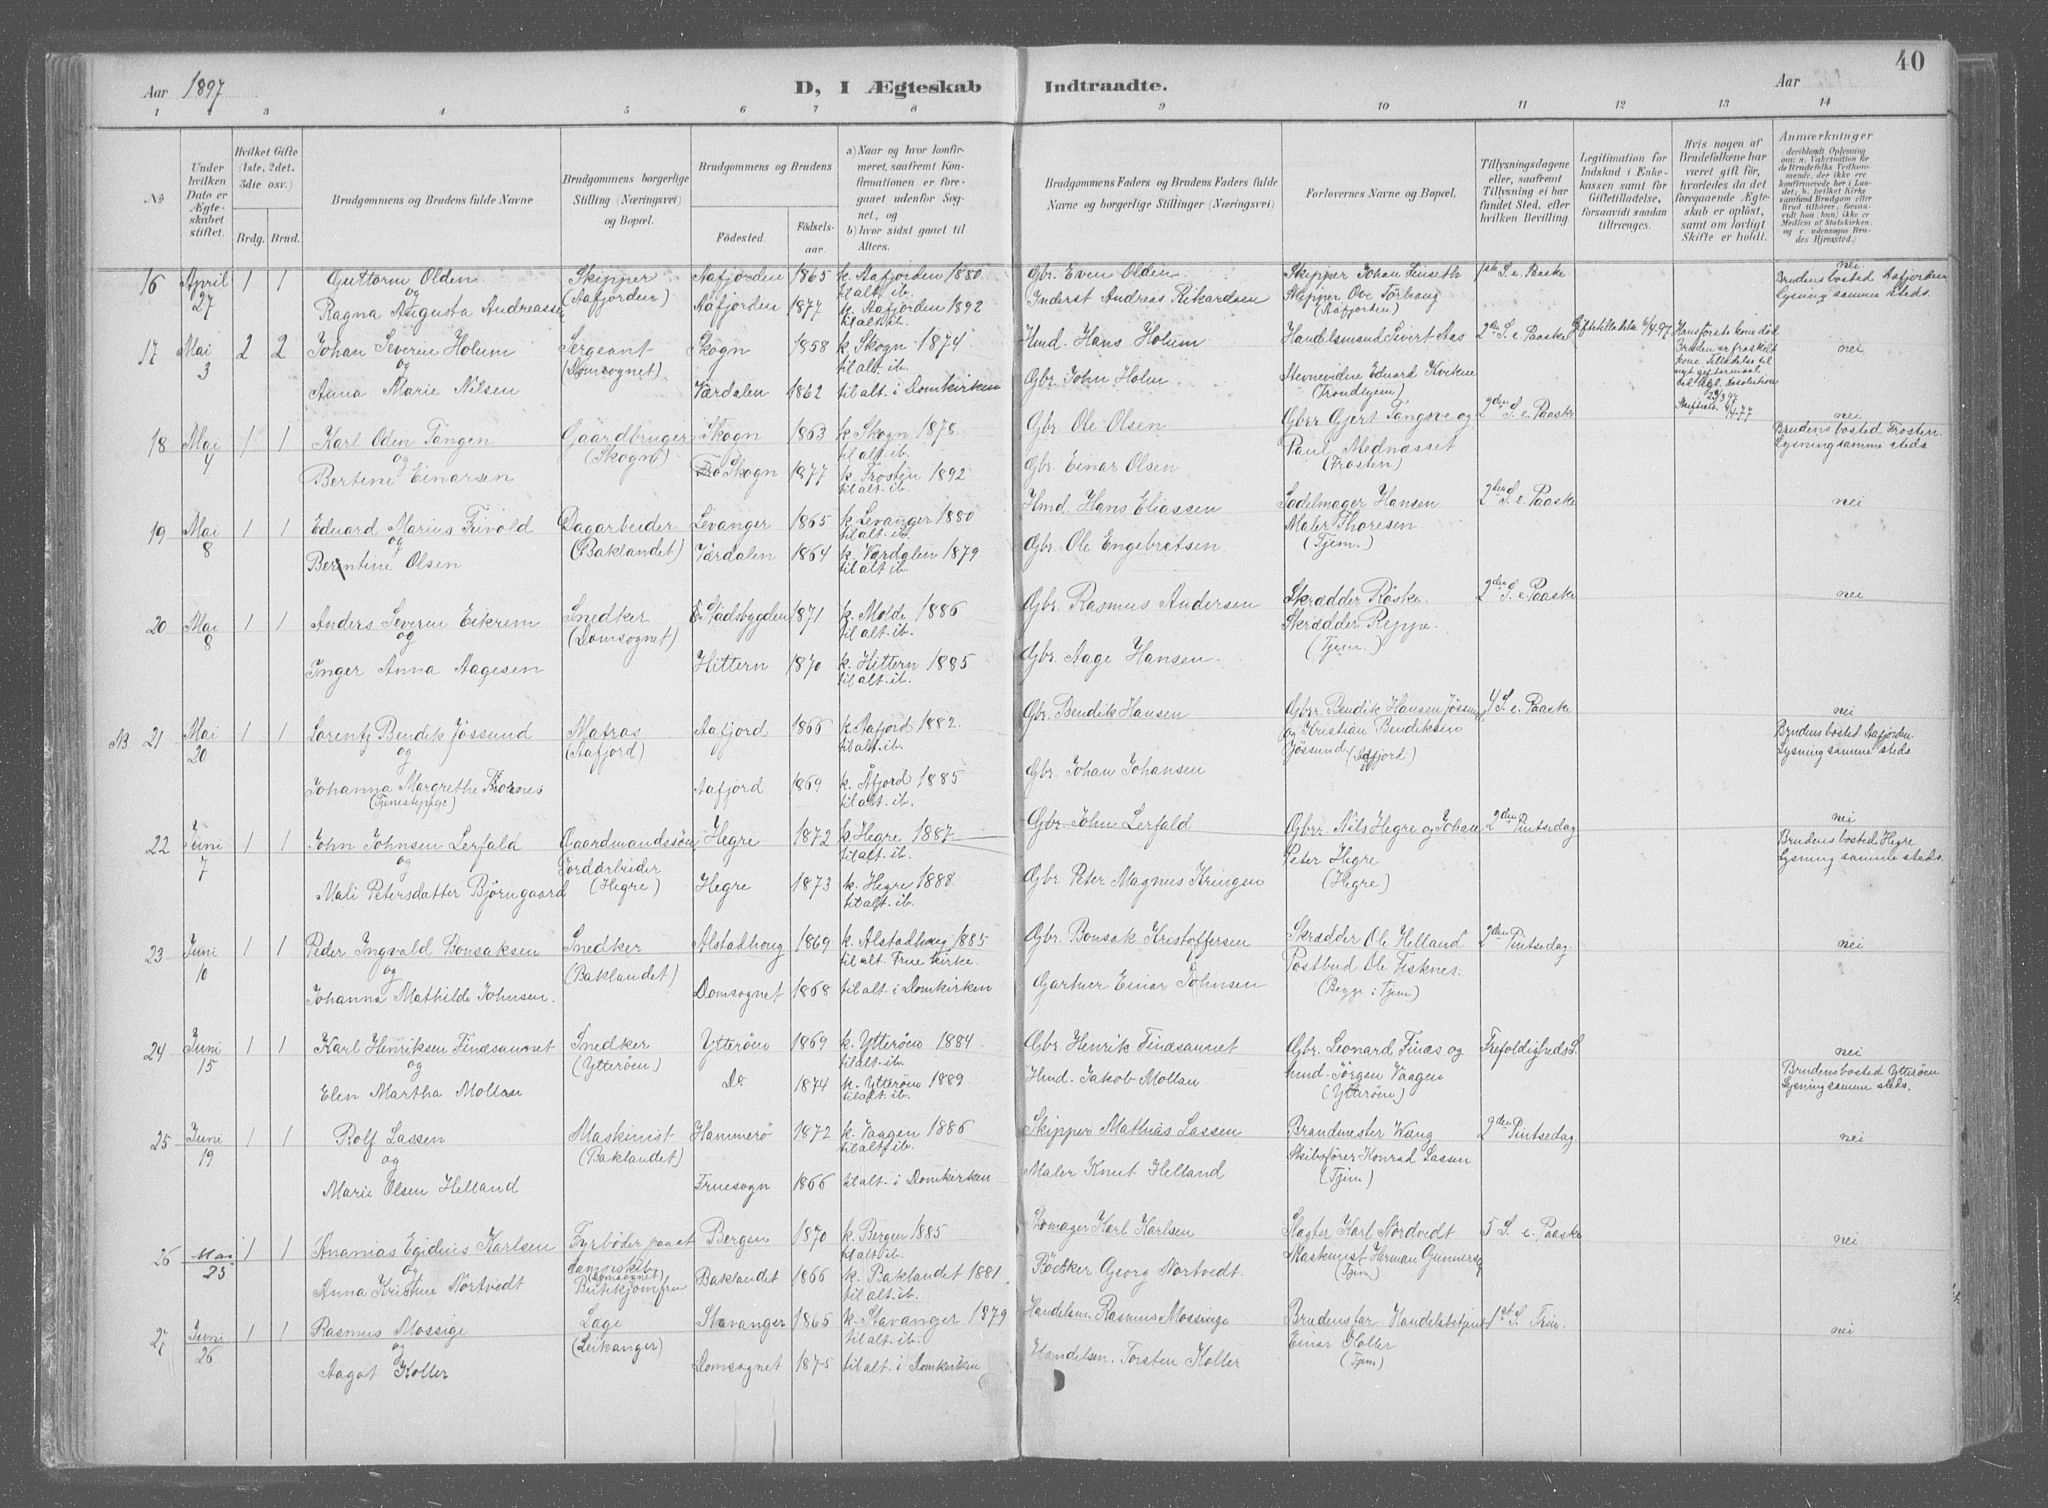 Aar 1897
D, I Ægteskab Indtraadte.
Aar
40
1 2 3 4 5 6 7 8 9 10 11 12 13 14
No
Under hvilken Dato er Ægteskabet stiftet.
Hvilket Gifte (1ste, 2det, 3die osv.)
Brdg. Brud.
Brudgommens og Brudens fulde Navne
Brudgommens borgerlige Stilling (Næringsvei) og Bopæl.
Brudgommens og Brudens
Fødested.
Fødselsaar.
a) Naar og hvor konfirmeret, saafremt Konfirmationen er foregaaet udenfor Sognet, og
b) hvor sidst gaaet til Alters.
Brudgommens Faders og Brudens Faders fulde Navne og borgerlige Stillinger (Næringsvei)
Forlovernes Navne og Bopæl.
Tillysningsdagene eller, saafremt Tillysning ei har fundet Sted, efter hvilken Bevilling.
Legitimation for Indskud i Enkekassen samt for Giftetilladelse, forsaavidt saadan tiltrænges.
Hvis nogen af Brudefolkene har været gift før, hvorledes da det foregaaende Ægteskab er opløst, samt om lovligt Skifte er holdt.
Anmærkninger
16 April 27 1 1 Guttorm Olden Skipper (Aafjorden) Aafjorden 1865 k. Aafjorden 1880 til alt. ib. Gbr. Even Olden Skipper Johan Finseth 1ste S. e. Paaske nei
og
Ragna Augusta Andreassen Aafjorden 1877 k. Aafjorden 1892 til alt. ib. Inderst Andreas Rikardsen Skipper Ove Torhaug (Aafjorden) Brudens bosted Aafjorden Lysning samme steds
17 Mai 3 2 2 Johan Severin Holum Sergeant (Domsognet) Skogn 1858 k. Skogn 1874 til alt. ib. Hmd. Hans Holum Handelsmand Sivert Aas 2den S. e. Paaske Giftetilladelse 6/4 97 Hans første kone død nei
og
Anna Marie Nilsen Værdalen 1862 til alt. i Domkirken Gbr. John Holm Stevnevidne Eduard Kvikne (Trondhjem) Bruden er fraskilt
18 Mai 4 1 1 Karl Oden Tangen Gaardbruger (Skogn) Skogn 1863 k. Skogn 1878 til alt. ib. Gbr. Ole Olsen Gbrr Gjert Tangsve og 2den S. e. Paaske nei
og
Bertine Einarsen Skogn 1877 k. Frosten 1892 til alt. ib. Gbr. Einar Olsen Paul Mednæsset (Frosten) Brudens bosted Frosten. Lysning samme steds
19 Mai 8 1 1 Eduard Marius Frivold Dagarbeider (Baklandet) Levanger 1865 k. Levanger 1880 til alt ib. Hmd. Hans Eliassen Sadelmager Hansen 2den S. e. Paaske nei
og
Berntine Olsen Værdalen 1864 k. Værdalen 1879 til alt ib. Gbr. Ole Engebretsen Maler Thoresen (Tjem.)
20 Mai 8 1 1 Anders Severin Eikrem Snedker (Domsognet) Stadsbygden 1871 k. Molde 1886 til alt. ib. Gbr. Rasmus Andersen Skrædder Røske. 2den S. e. Paaske nei
og
Inger Anna Aagesen Hittern 1870 k. Hittern 1885 til alt. ib. Gbr. Aage Hansen Skrædder Reppe. (Tjem.)
NB. 21 Mai 20 1 1 Lorentz Bendik Jøssund Matros (Aafjord) Aafjord 1866 k. Aafjord 1882 til alt. ib. Gbr. Bendik Hansen Gbrr Bendik Hansen Jøssund 4 S. e. Paaske nei
og
Johanna Margrethe (Tjenestepige) Aafjord 1869 k. Åfjord 1885 til alt. ib. Gbr. Johan Johansen og Kristian Bendiksen Jøssund (Aafjord) Brudens bosted Aafjorden. Lysning samme steds
22 Juni 7 1 1 John Johnsen Lerfald Gaardmandssøn Jordarbeider (Hegre) Hegre 1872 k. Hegre 1887 til alt ib. Gbr. John Lerfald Gbrr. Nils Hegre og Johan Peter Hegre (Hegre) 2den Pintsedag nei
og
Mali Petersdatter Bjørngaard Hegre 1873 k. Hegre 1888 til alt. ib. Gbr. Peter Magnus Kringen Brudens bosted Hegre Lysning samme steds.
23 Juni 10 1 1 Peder Ingvald Bonsaksen Snedker (Baklandet) Alstadhoug 1869 k. Alstadhaug 1885 til alt. Frue Kirke. Gbr. Bonsak Kristoffersen Skrædder Ole Helland 2den Pintsedag nei
og
Johanna Mathilde Johnsen. Domsognet 1868 til alt. i Domkirken Gartner Einar Johnsen Postbud Ole Fisknes. (Begge i Tjem)
24 Juni 15 1 1 Karl Henriksen Finæsaunet Snedker (Ytterøen) Ytterøen 1869 k. Ytterøen 1884 til alt. ib. Gbr. Henrik Finæsaunet Gbr. Leonard Finæs og Trefoldigheds S. nei
og
Elen Martha Mollan Do 1874 k. Ytterøen 1889 til alt. ib. Hmd. Jakob Mollan Hmd. Jørgen Vaagen (Ytterøen) Brudens bosted Ytterøen Lysning samme steds.
25 Juni 19 1 1 Rolf Lassen Maskinist (Baklandet) Hammerø 1872 k. Vaagen 1886 til alt ib. Skipper Mathias Lassen Brandmester Wang 2den Pintsedag nei
og
Marie Olsen Helland Fruesogn 1866 til alt. i Domkirken Maler Knut Helland Skibsfører Konrad Lassen (Tjem)
26 Mai 25 1 1 Ananias Egidius Karlsen Fyrbøder paa et dampskib (Domsognet) Bergen 1870 k. Bergen 1885 til alt ib. Skomager Karl Karlsen Slagter Karl Nordvedt 5 S. e. Paaske nei
og
Anna Kristine Nortvedt Butikjomfru Baklandet 1866 k. Baklandet 1881. til alt. ib. Bødker Georg Nortvedt. Maskinist Herman Gunnersen (Tjem)
27 Juni 26 1 1 Rasmus Mossige Læge (Leikanger) Stavanger 1865 k. Stavanger 1879 til alt. ib. Handelsm. Rasmus Mossige Brudens far Handelsbetjent 1st S. Trin. nei
og
Aagot Koller Domsognet 1875 til alt. i Domkirken Handelsm. Torsten Koller Einar Koller (Tjem)